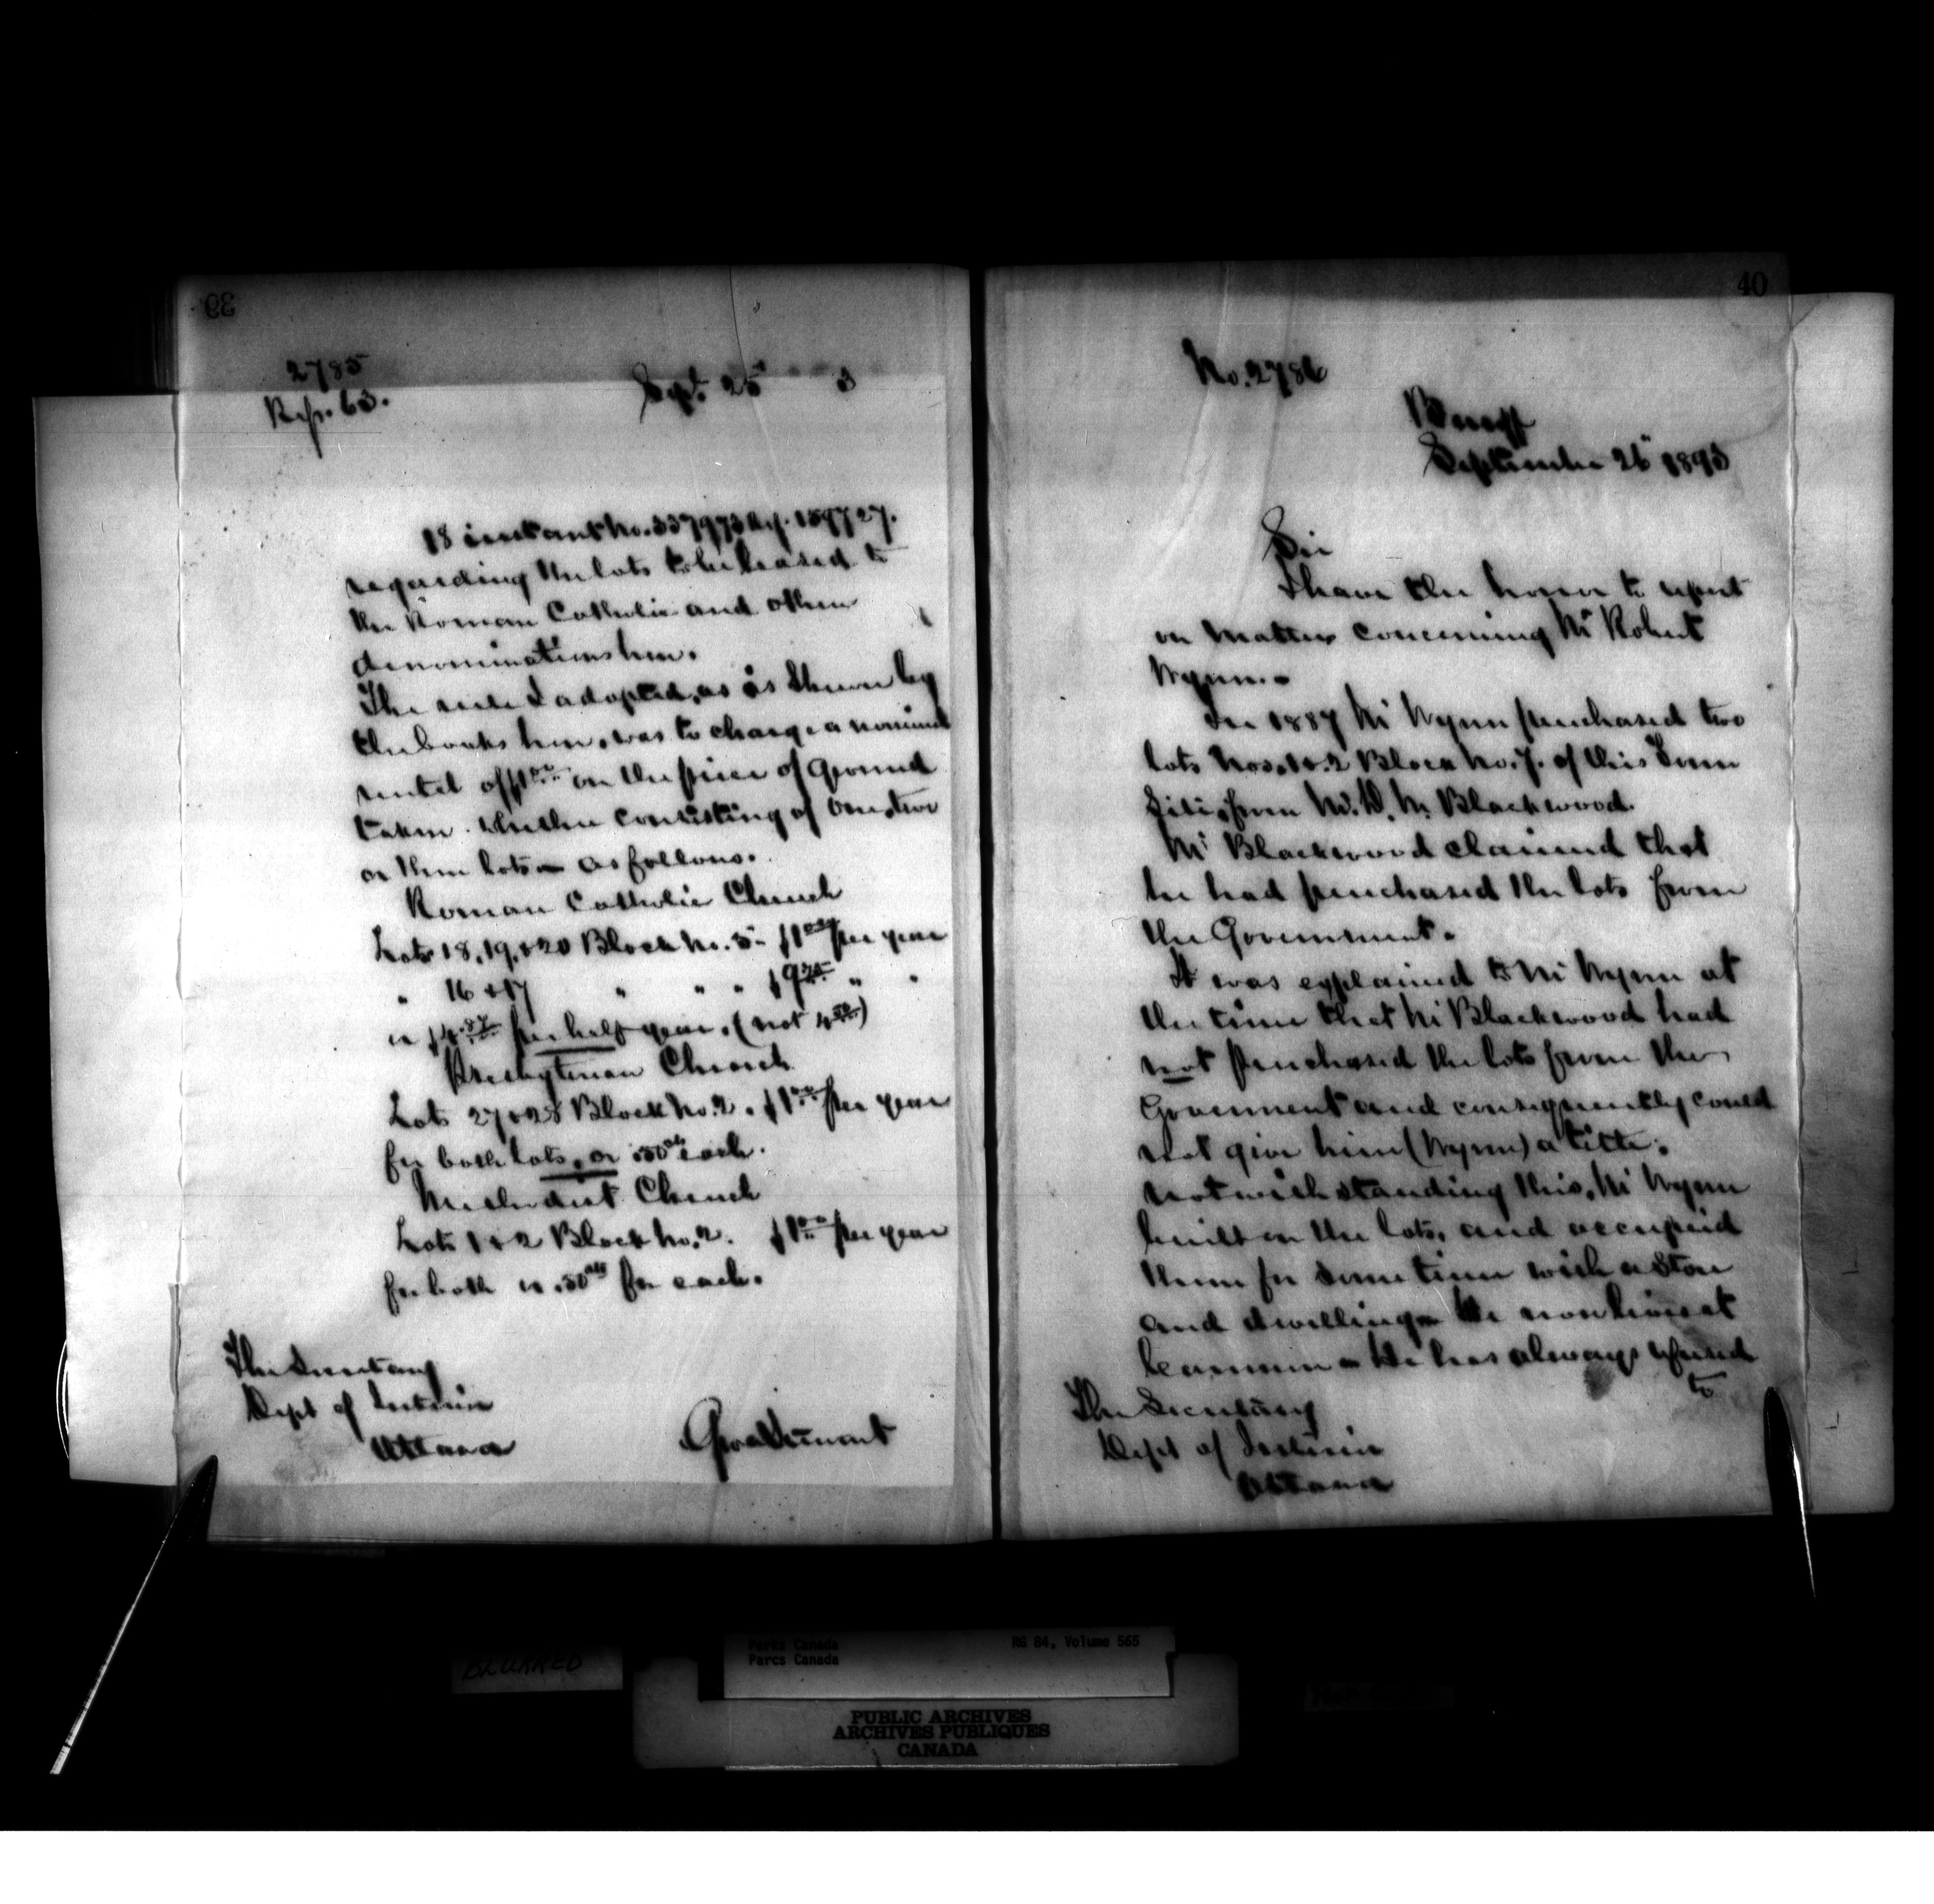 39
2785
Refr. 63.
Sept. 25 3
18 instant No. 337973 Ref. 159727.
regarding the lots to be leased to
the Roman Catholic and other
denominations here.
The rule I adopted, as is shewn by
the books here, was to charge a nominal
rental of $1.00 on the piece of ground
taken. whether consisting of one, two
or three lots - as follows.
Roman Catholic Church
Lots 18, 19, & 20 Block No. 5 - $1.00 per year
" 16 & 17 " " " $9.75 " "
or $4.87 per half year. (not 4.50)
Presbyterian Church
Lots 27 & 28 Block No. 2. $1.00 per year
for both lots, or .50cts each.
Methodist Church
Lots 1 & 2 Block No. 2. $1.00 per year
for both or .50cts for each.
The Secretary
Dept of Interior
Ottawa
Geo A Stewart
40
No. 2786
Banff
September 26 1893
Sir
I have the honor to report
on matters concerning Mr Robert
Wynn. -
In 1887 Mr Wynn purchased two
lots Nos. 1 & 2 Block No. 7. of this Town
Site, from W. D. M. Blackwood.
Mr Blackwood claimed that
he had purchased the lots from
the Government.
It was explained to Mr Wynn at
the time that Mr Blackwood had
not purchased the lots from the
Government and consequently could
not give him (Wynn) a title.
notwithstanding this, Mr Wynn
built on the lots, and occupied
them for some time with a Store
and dwelling - He now lives at
Canmore - He has always refused
to
The Secretary
Dept of Interior
Ottawa
BLURRED
Parks Canada
Parcs Canada
RG 84, Volume 565
PUBLIC ARCHIVES
ARCHIVES PUBLIQUES
CANADA